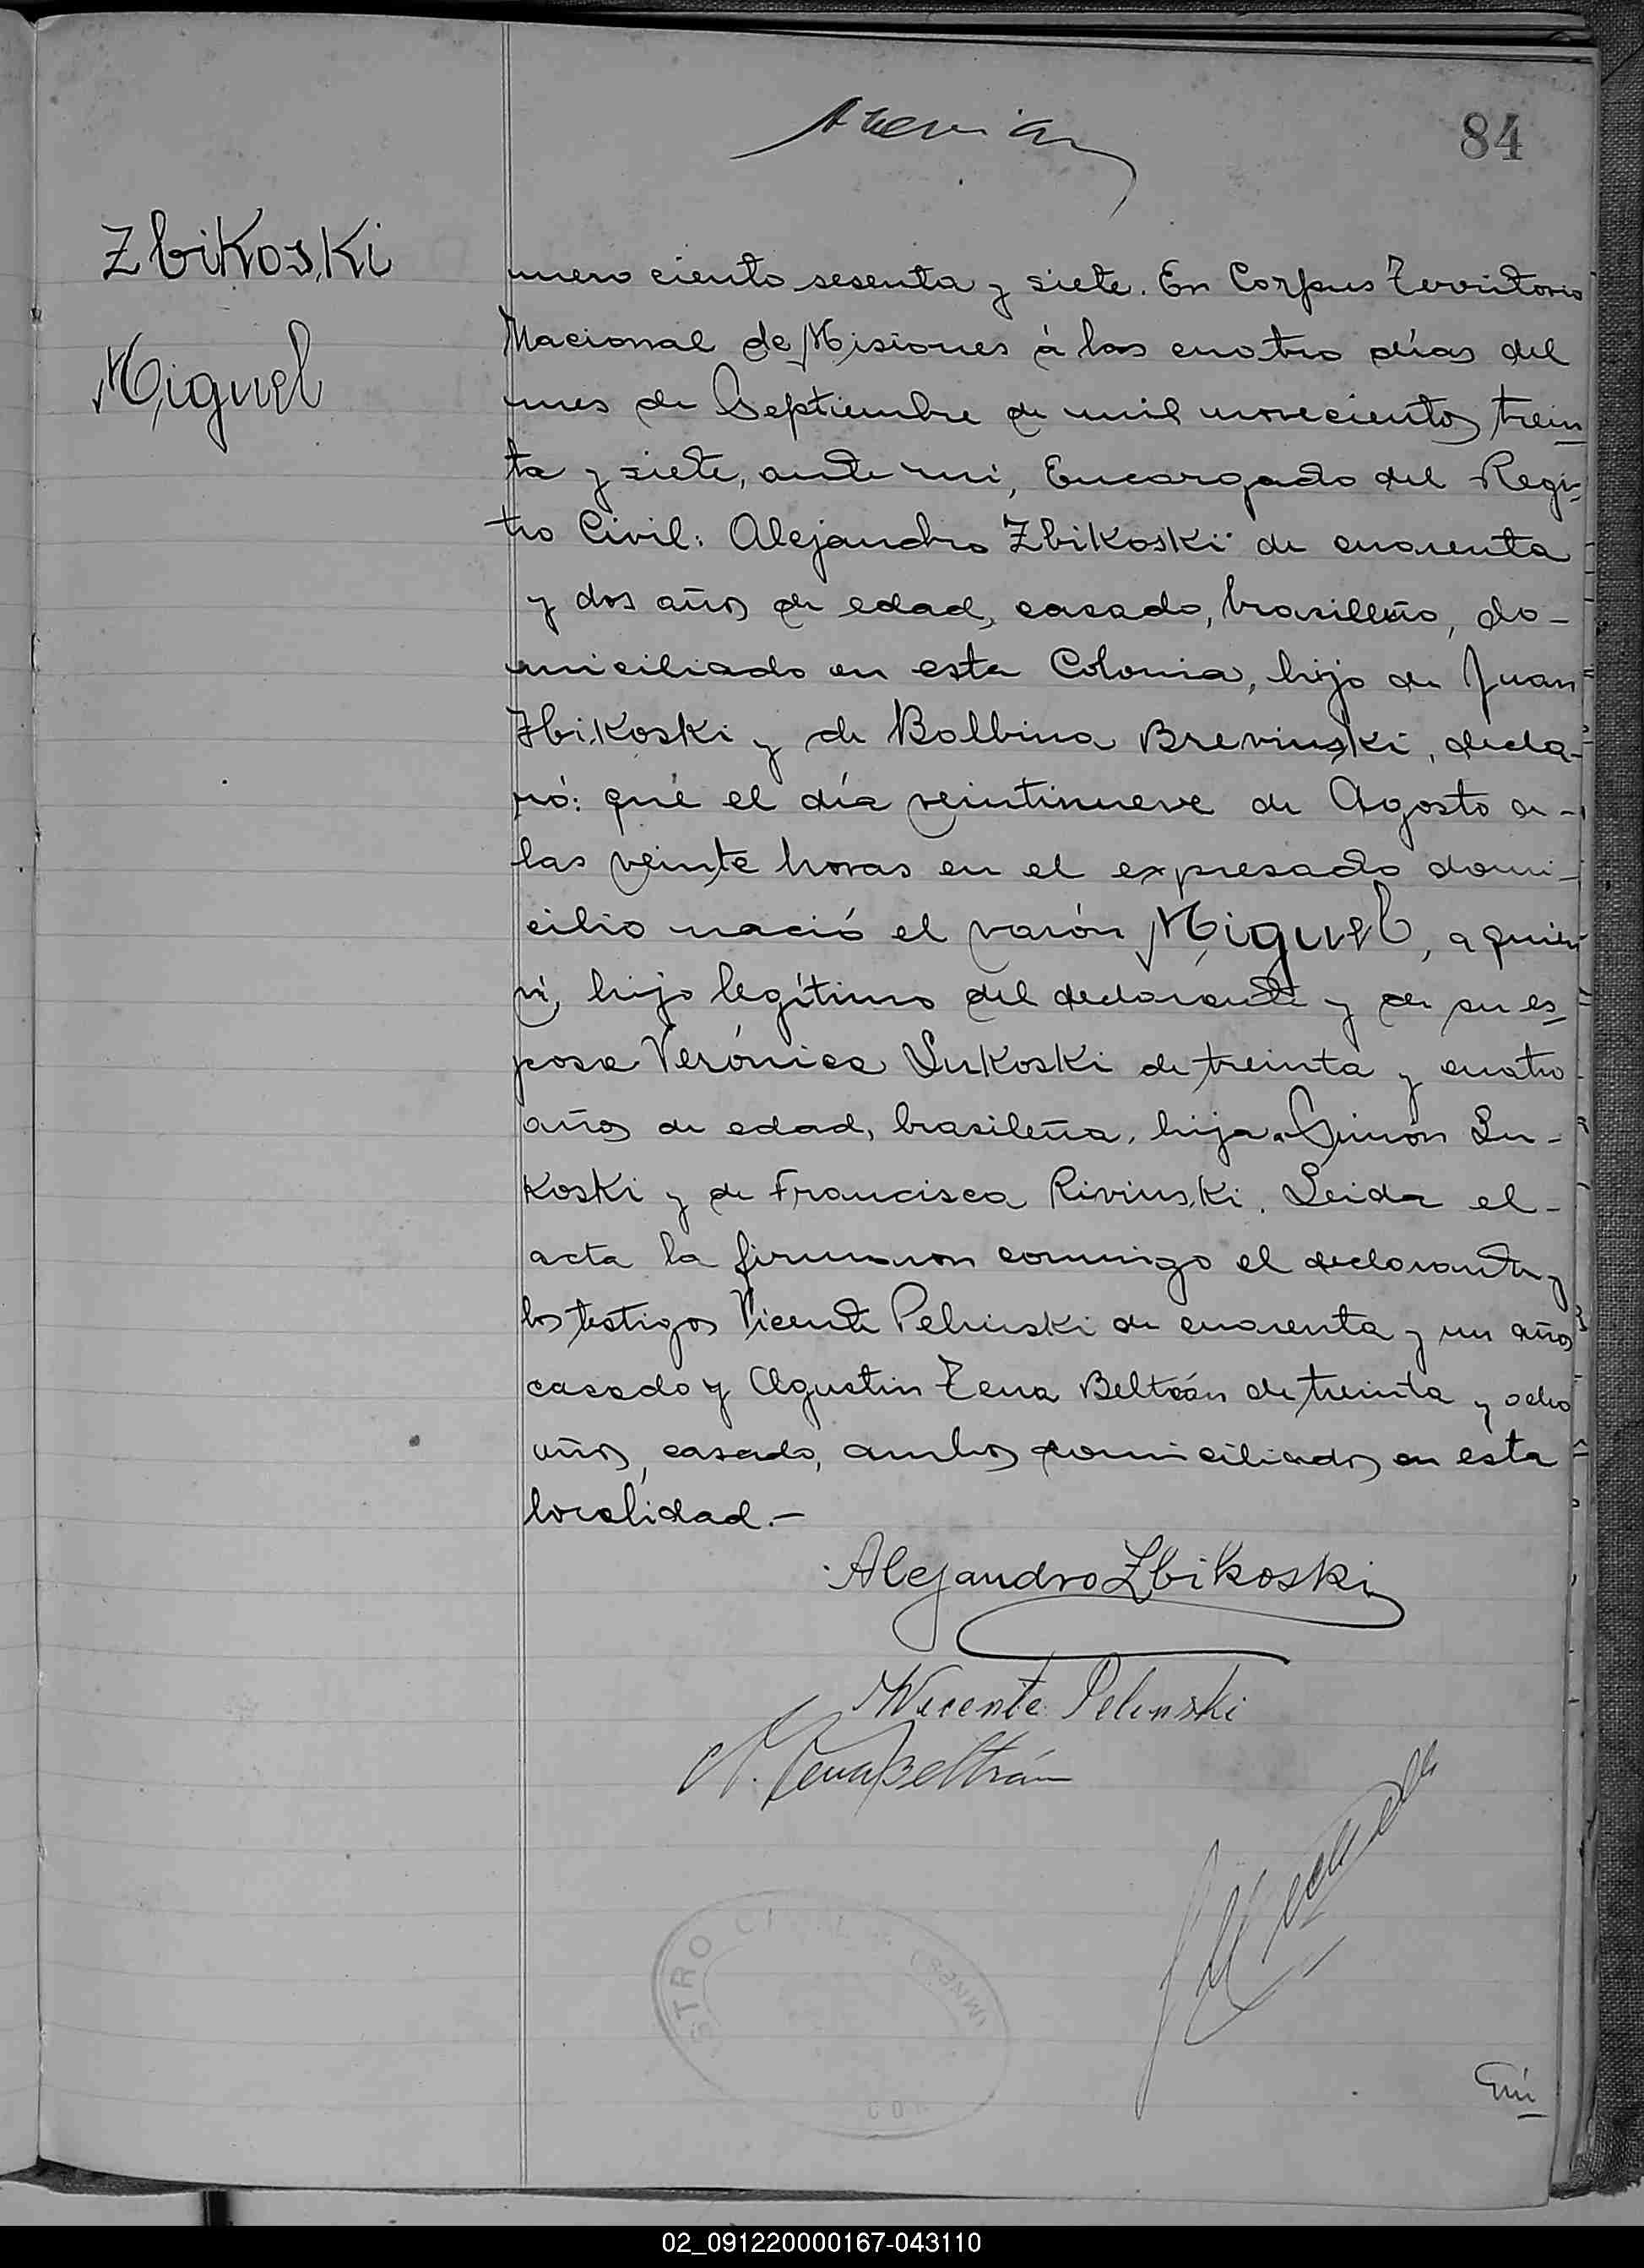 84
Zbikoski
Miguel
mero ciento sesenta y siete. En Corpus Territorio
Nacional de Misiones á los cuatro días del
mes de Septiembre de mil novecientos trein
ta y siete, ante mi, Encargado del Regis
tro Civil: Alejandro Zbikoski de cuarenta
y dos años de edad, casado, brasilleño, do-
miciliado en esta Colonia, hijo de Juan
Zbikoski y de Balbina Brevinski, decla-
ró: qué el día veintinueve de Agosto a-
las veinte horas en el expresado domi-
cilio nació el varón Miguel, a quien
ví, hijo legítimo del declarante y de su es
posa Verónica Lukoski de treinta y cuatro
años de edad, brasileña, hija Simón Lu-
koski y de Francisca Rivinski. Leida el-
acta la firmaron conmigo el declarante y
los testigos Vicente Pelinski de cuarenta y un años
casado y Agustin Tena Beltrán de treinta y ocho
años, casado, ambos domiciliados en esta
localidad.-
Alejandro Zbikoski
Wicente Pelinski
A. Tena Beltrán
STRO CIVIL (MNES)
COR
02_091220000167-043110